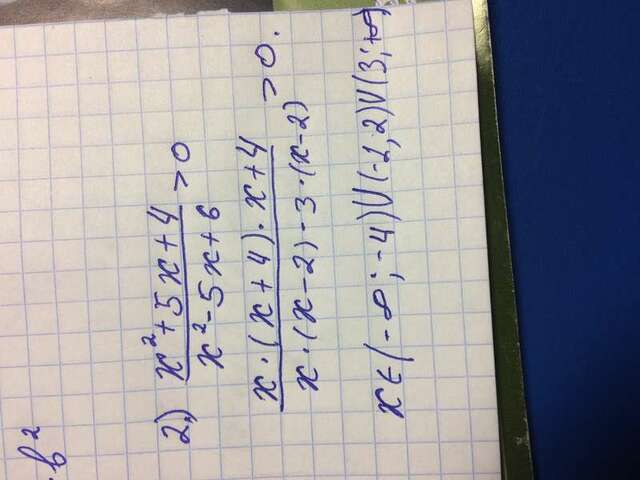 b²
2) x²+5x+4 / x²-5x+6 > 0
x·(x+4)·x+4 / x·(x-2)-3·(x-2) > 0.
x∈(-∞;-4)U(-1,2)U(3;+∞)